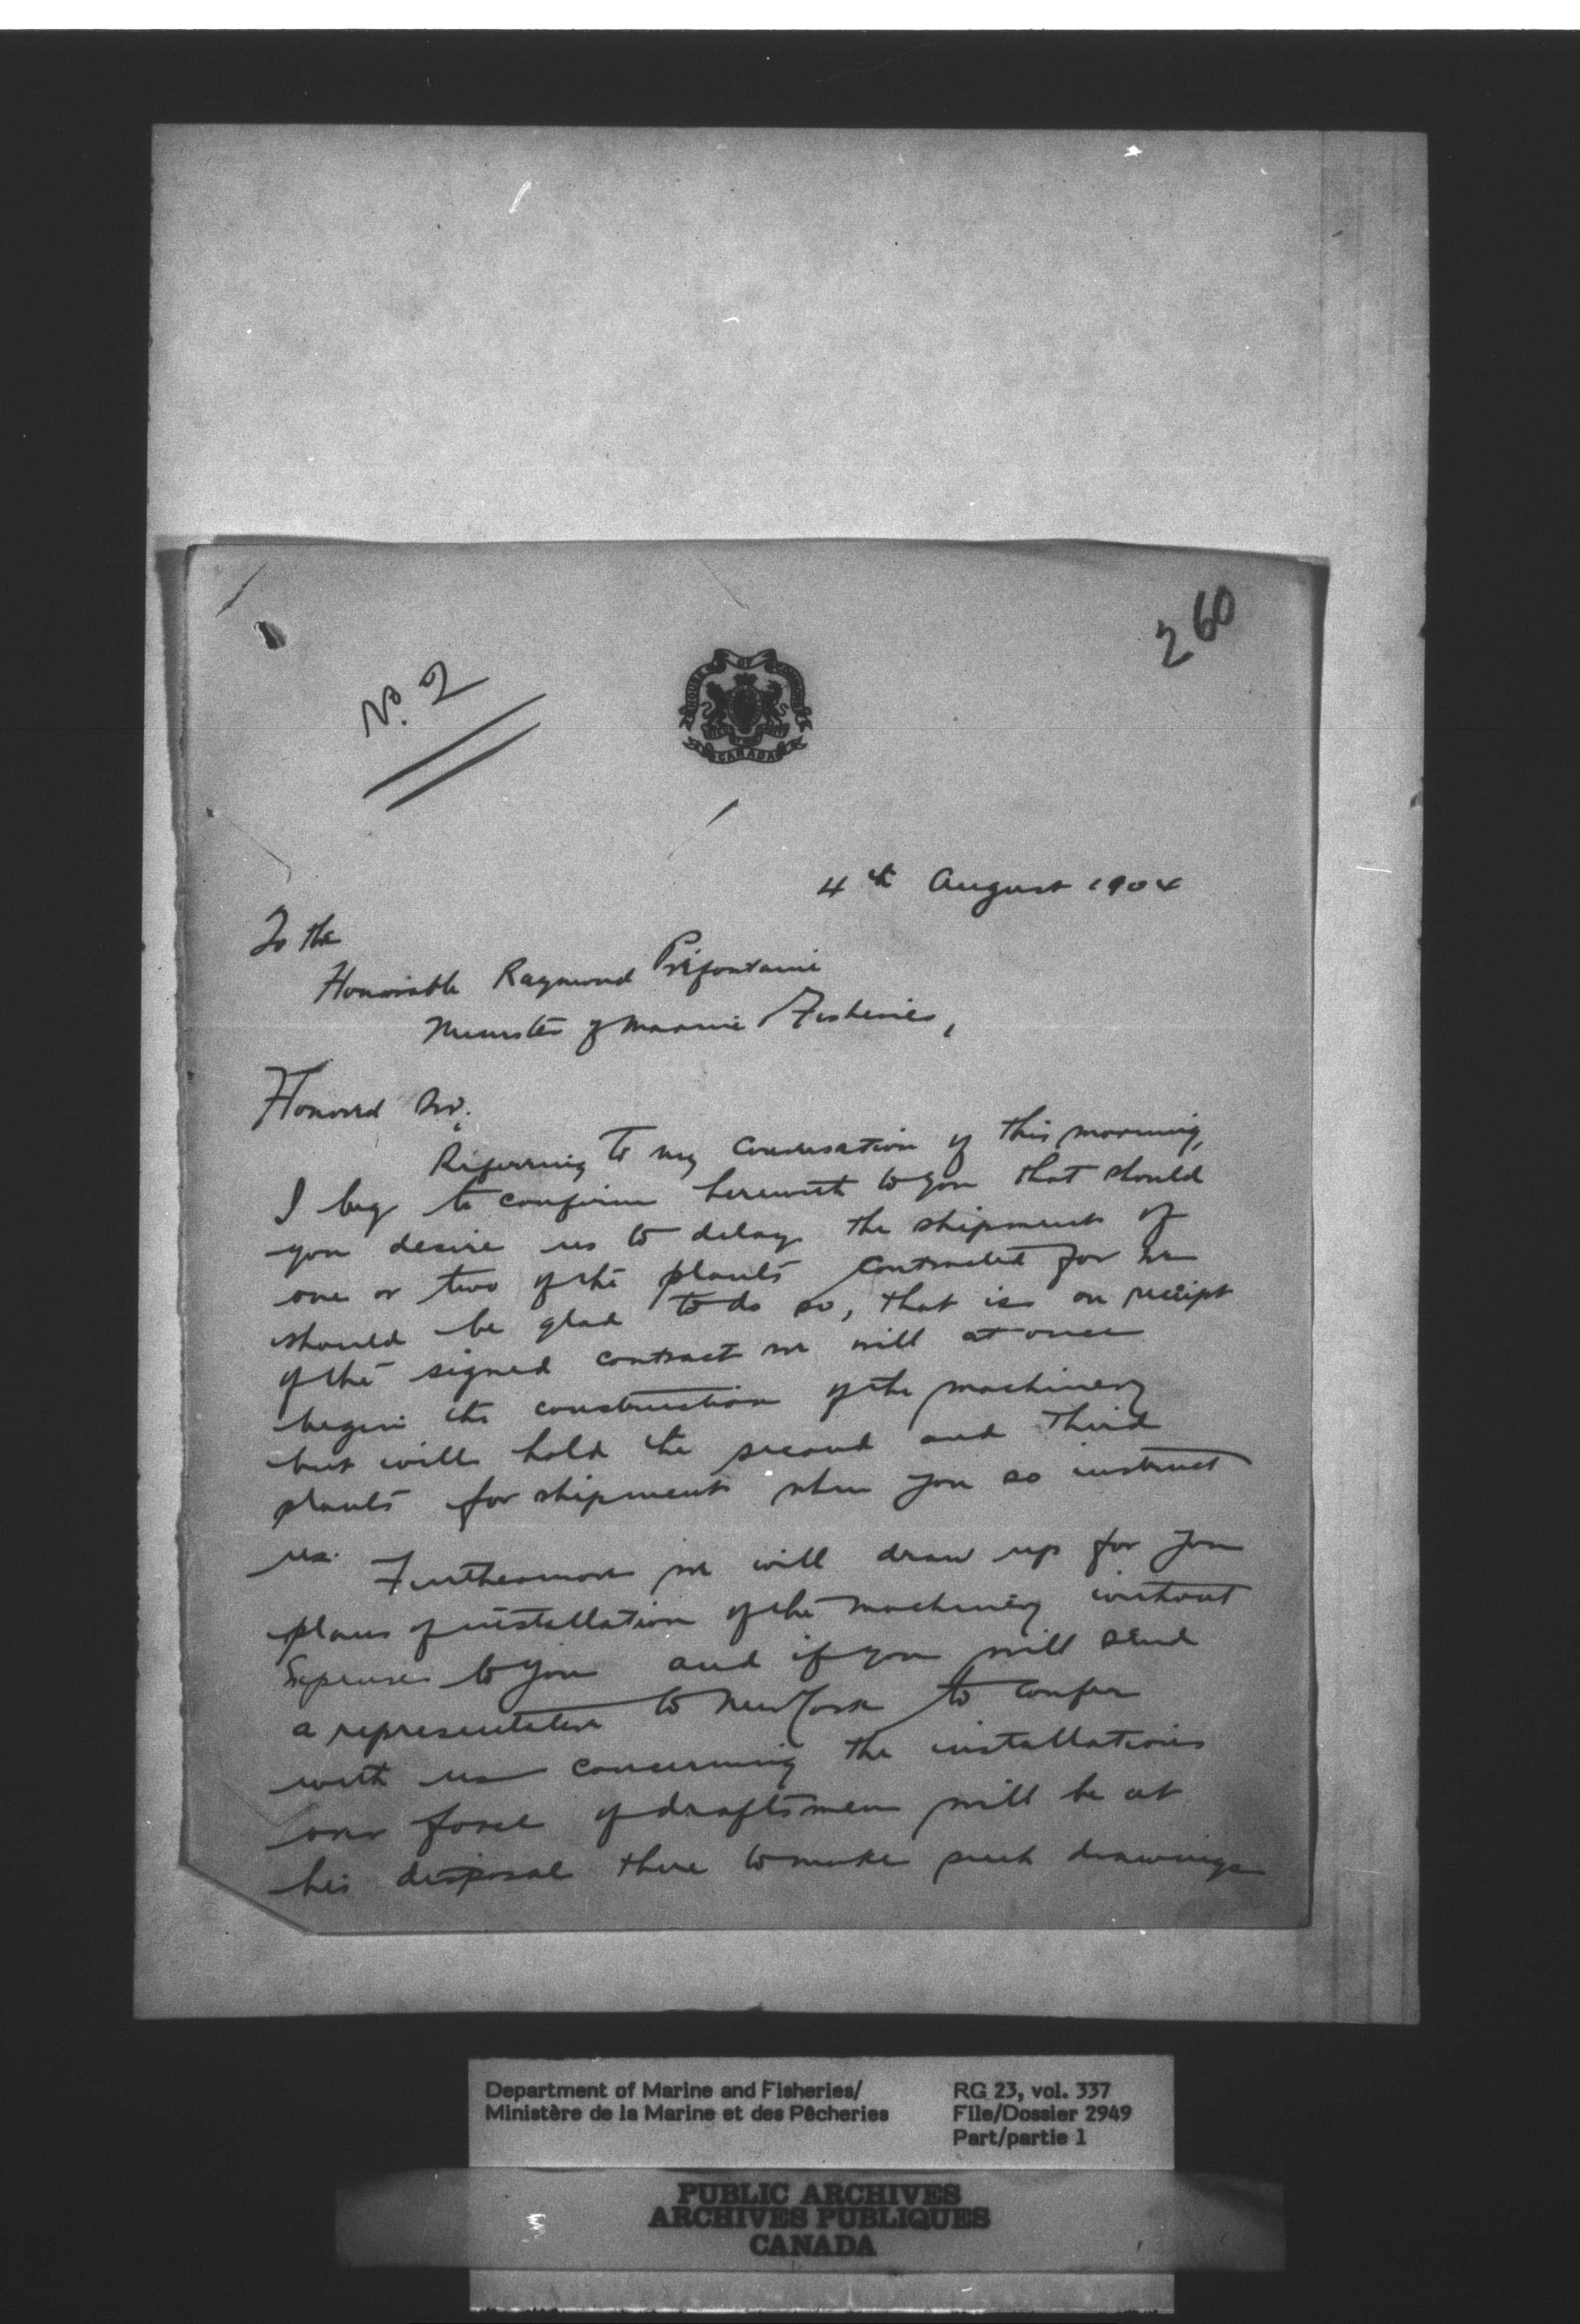 260
No. 2
HOUSE OF COMMONS
CANADA
4th August 1904
To the
Honorable Raymond Préfontaine
Minister of Marine & Fisheries,
Honored Sir,
Referring to my conversation of this morning,
I beg to confirm herewith to you that should
you desire us to delay the shipment of
one or two of the plants contracted for we
should be glad to do so, that is on receipt
of the signed contract we will at once
begin the construction of the machinery
but will hold the second and third
plants for shipment when you so instruct
us.
Furthermore we will draw up for you
plans of installation of the machinery without
expense to you and if you will send
a representative to New York to confer
with us concerning the installations
our force of draftsmen will be at
his disposal there to make such drawings
Department of Marine and Fisheries/
Ministère de la Marine et des Pêcheries
RG 23, vol. 337
File/Dossier 2949
Part/partie 1
PUBLIC ARCHIVES
ARCHIVES PUBLIQUES
CANADA